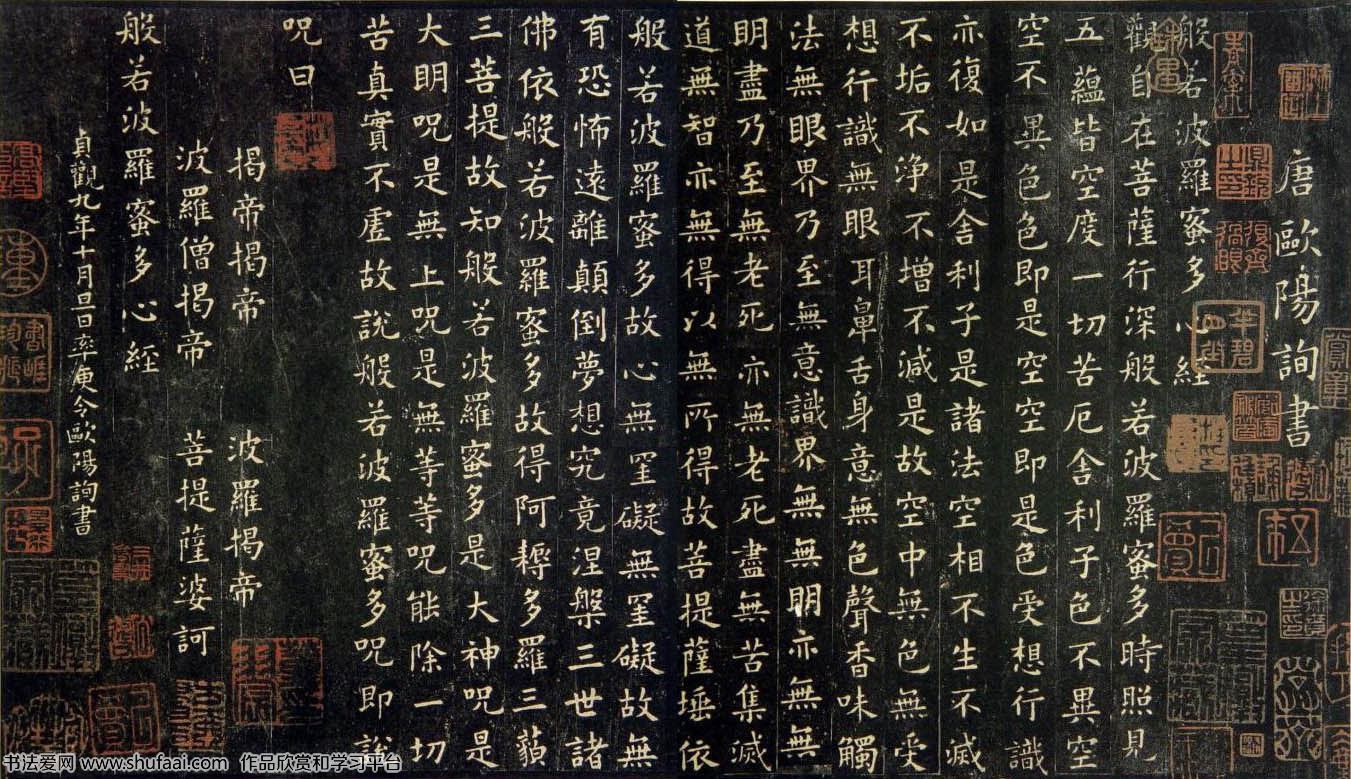 唐歐陽詢書
般若波羅蜜多心經
觀自在菩薩行深般若波羅蜜多時照見
五蘊皆空度一切苦厄舍利子色不異空
空不異色色即是空空即是色受想行識
亦復如是舍利子是諸法空相不生不滅
不垢不淨不增不減是故空中無色無受
想行識無眼耳鼻舌身意無色聲香味觸
法無眼界乃至無意識界無無明亦無無
明盡乃至無老死亦無老死盡無苦集滅
道無智亦無得以無所得故菩提薩埵依
般若波羅蜜多故心無罣礙無罣礙故無
有恐怖遠離顛倒夢想究竟涅槃三世諸
佛依般若波羅蜜多故得阿耨多羅三藐
三菩提故知般若波羅蜜多是大神呪是
大明呪是無上呪是無等等呪能除一切
苦真實不虛故說般若波羅蜜多呪即說
呪曰
揭帝揭帝 波羅揭帝
波羅僧揭帝 菩提薩婆訶
般若波羅蜜多心經
貞觀九年十月旦日率更令歐陽詢書
书法爱网 www.shufaai.com 作品欣赏和学习平台